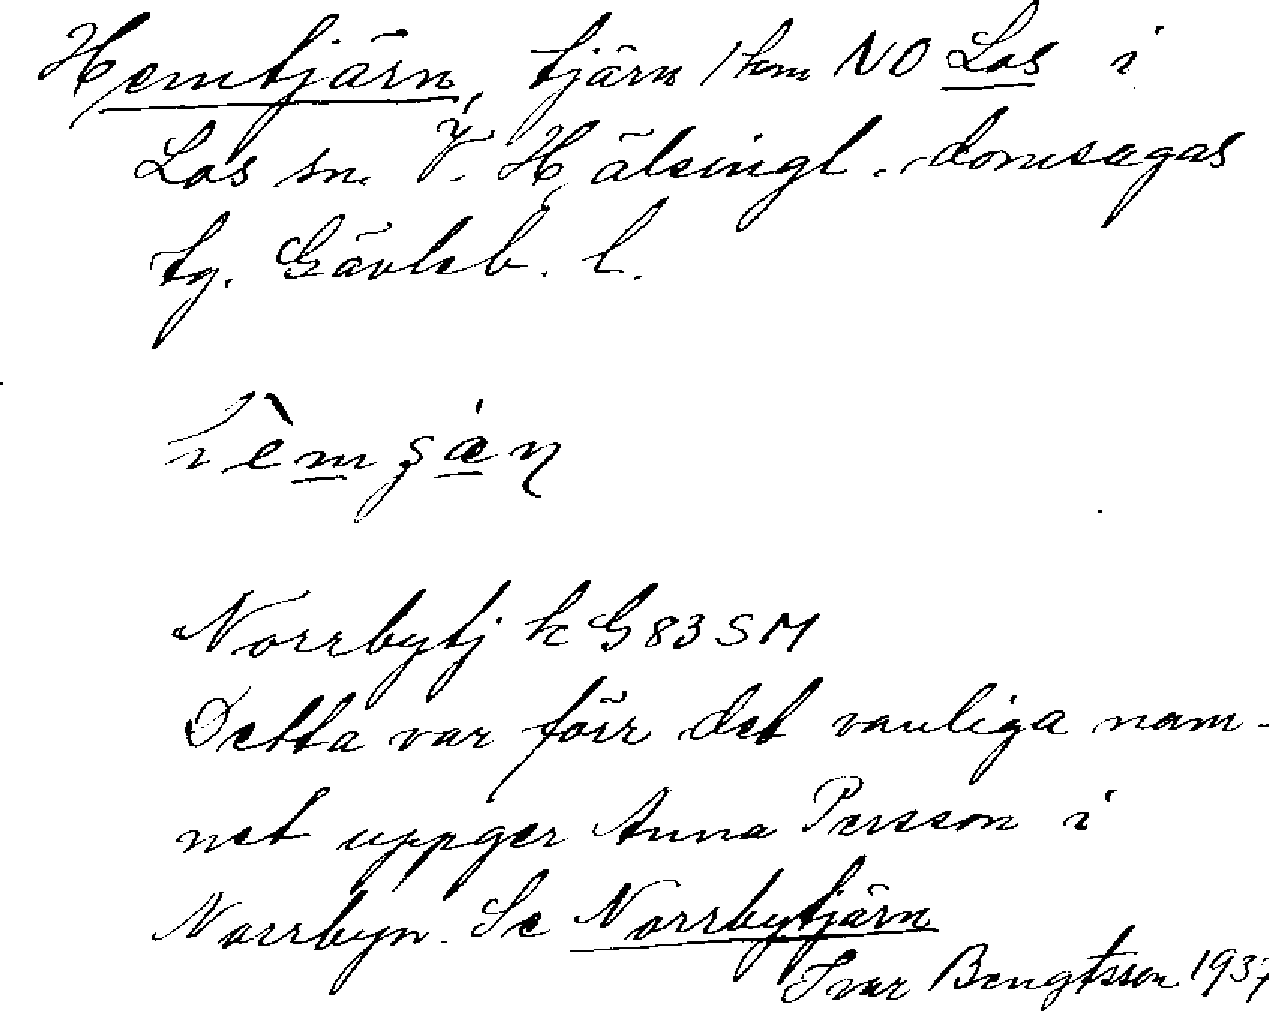 Hemtjärn, tjärn 1 km NO Los i
Los sn. V. Hälsingl. domsagas
tg. Gävleb. l.
Norrbytj k G 83 SM
Detta var förr det vanliga nam-
net uppger Anna Persson i
Norrbyn. Se Norrbytjärn
Ivar Bengtsson 1937